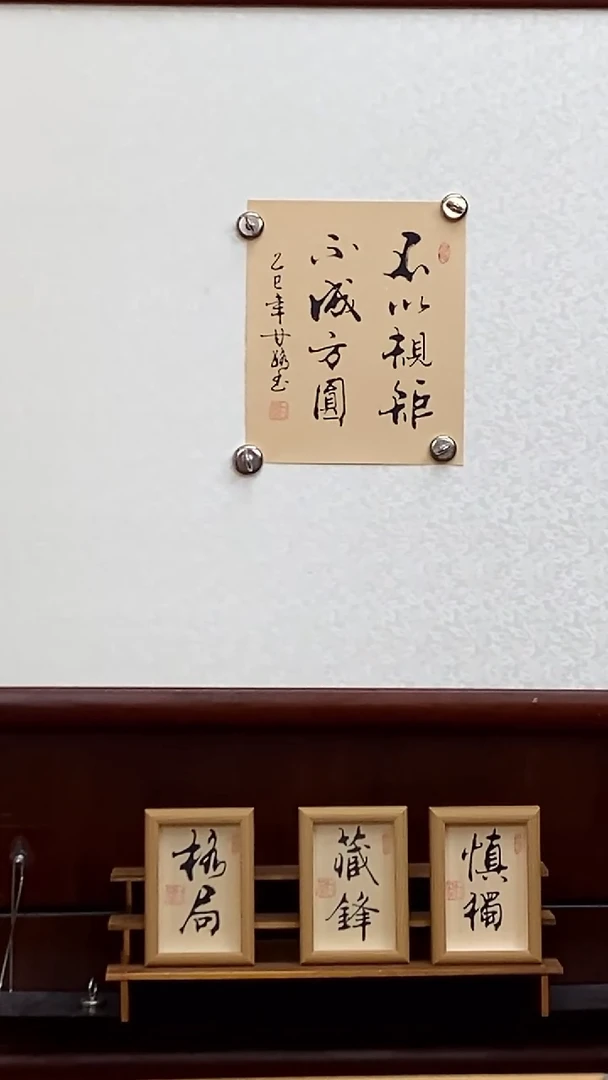 不以規矩
不成方圓
乙巳年
格局
藏鋒
慎獨